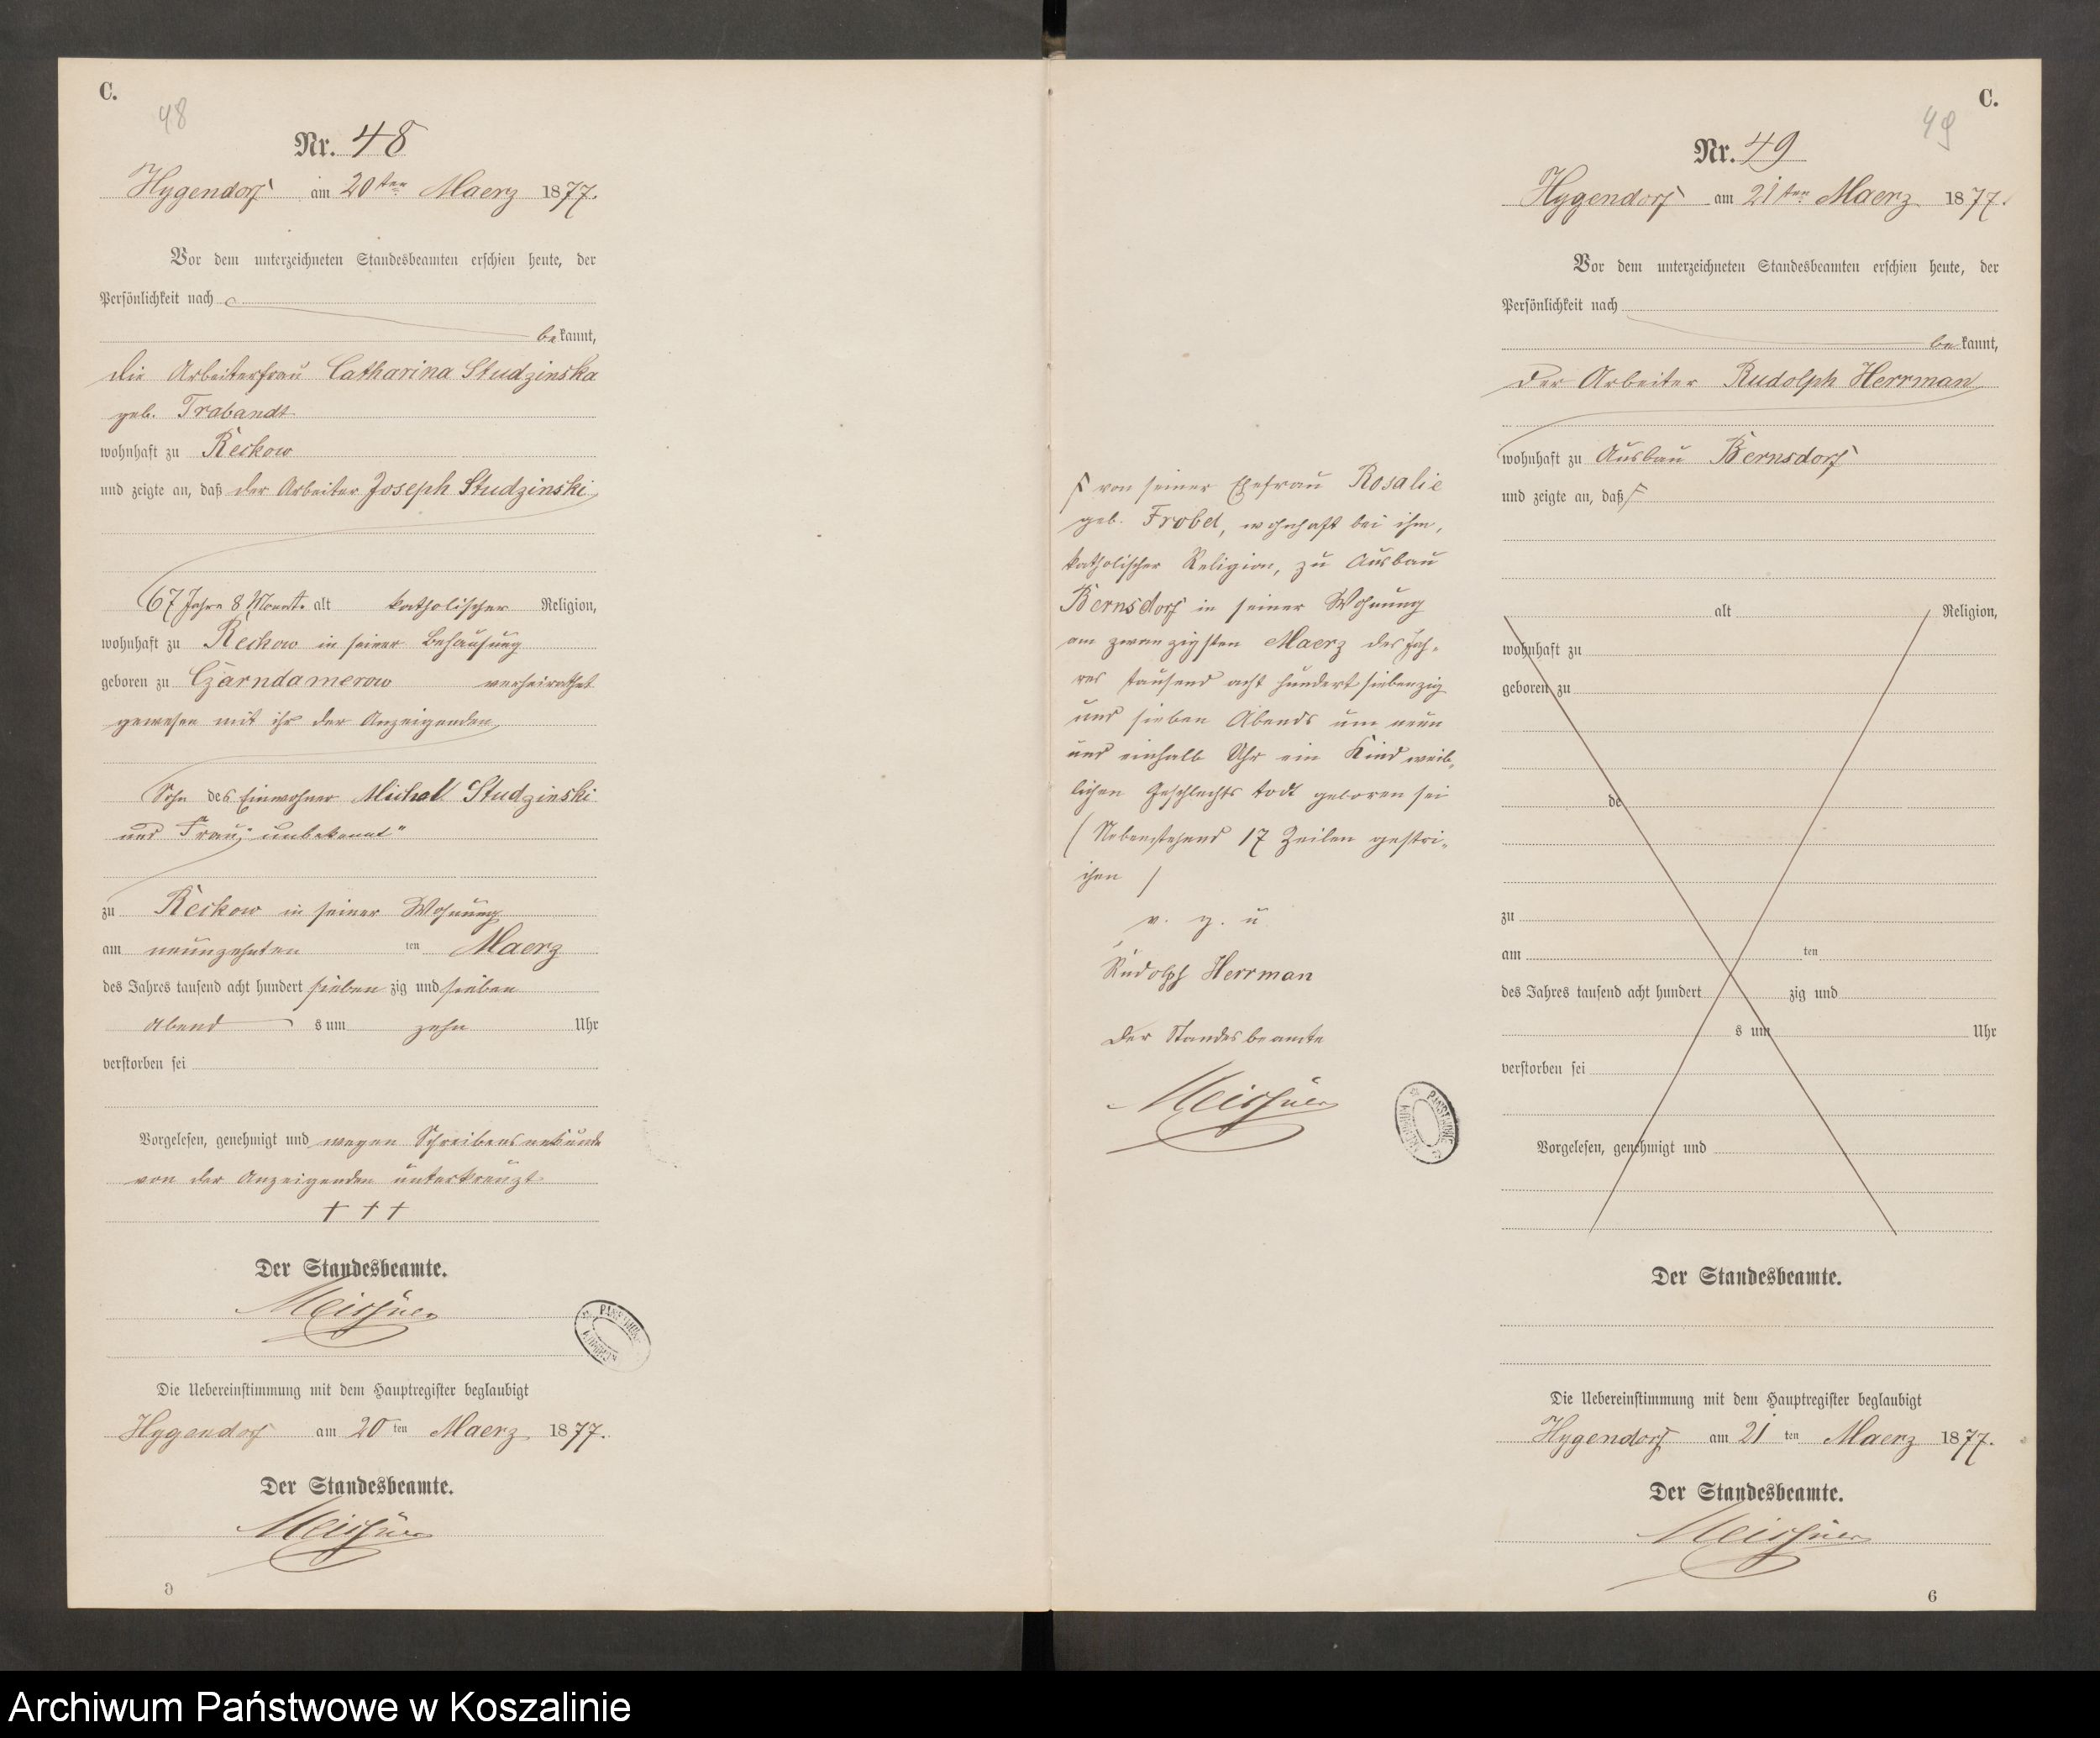 C.
48
Nr. 48
Hygendorf am 20ten Maerz 1877.
Vor dem unterzeichneten Standesbeamten erschien heute, der
Persönlichkeit nach
bekannt,
die Arbeiterfrau Catharina Studzinska
geb. Trabandt
wohnhaft zu Reckow
und zeigte an, daß der Arbeiter Joseph Studzinski
67 Jahre 8 Monate alt katholischer Religion,
wohnhaft zu Reckow in seiner Behausung
geboren zu Czarndamerow verheirathet
gewesen mit ihr der Anzeigenden
Sohn des Einwohner Michall Studzinski
und Frau „unbekannt"
zu Reckow in seiner Wohnung
am neunzehnten ten Maerz
des Jahres tausend acht hundert sieben zig und sieben
Abend s um zehn Uhr
verstorben sei
Vorgelesen, genehmigt und wegen Schreibensunkunde
von der Anzeigenden unterkreuzt
+ + +
Der Standesbeamte.
Meissner
Die Uebereinstimmung mit dem Hauptregister beglaubigt
Hygendorf am 20 ten Maerz 1877.
Der Standesbeamte.
Meissner
C.
49
Nr. 49
Hygendorf am 21ten Maerz 1877.
Vor dem unterzeichneten Standesbeamten erschien heute, der
Persönlichkeit nach
bekannt,
der Arbeiter Rudolph Herrman
wohnhaft zu Ausbau Bernsdorf
und zeigte an, daß
von seiner Ehefrau Rosalie
geb. Frobel, wohnhaft bei ihm,
katholischer Religion, zu Ausbau
Bernsdorf in seiner Wohnung
am zwanzigsten Maerz des Jah-
res tausend acht hundert siebenzig
und sieben Abends um neun
und einhalb Uhr ein Kind weib-
lichen Geschlechts todt geboren sei
(Nebenstehend 17 Zeilen gestri-
chen /
v. g. u
Rudolph Herrman
Der Standesbeamte
Meissner
alt Religion,
wohnhaft zu
geboren zu
de
zu
am ten
des Jahres tausend acht hundert zig und
s um Uhr
verstorben sei
Vorgelesen, genehmigt und
Der Standesbeamte.
Die Uebereinstimmung mit dem Hauptregister beglaubigt
Hygendorf am 21 ten Maerz 1877.
Der Standesbeamte.
Meissner
6
Archiwum Państwowe w Koszalinie